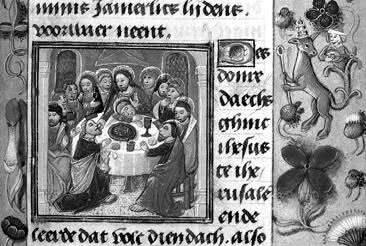 mijns Jamerlics lijdens.
voorwaer neent.
Des
donre
daechs
ghinc
ihesus
te ihe
rusale
ende
leerde dat volc dien dach. Also